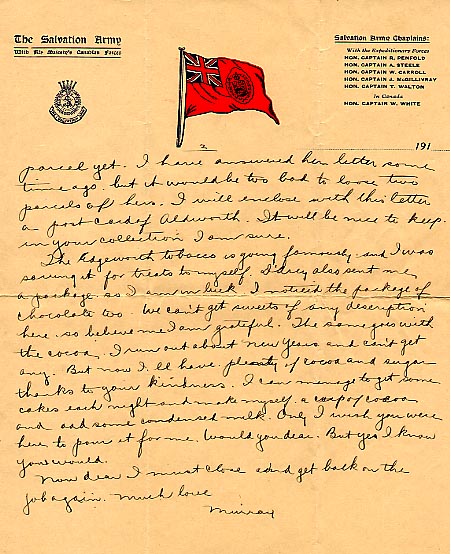 The Salvation Army
With His Majesty's Canadian Forces
Salvation Army Chaplains:
With the Expeditionary Forces
HON. CAPTAIN R. PENFOLD
HON. CAPTAIN A. STEELE
HON. CAPTAIN W. CARROLL
HON. CAPTAIN J. McGILLIVRAY
HON. CAPTAIN T. WALTON
In Canada
HON. CAPTAIN W. WHITE
2
191
parcel yet. I have answered her letter some
time ago. but it would be too bad to loose two
parcels off hers. I will enclose with this letter
a post card of Aldworth. It will be nice to keep
in your collection I am sure.
The Edgeworth tobacco is going famously and I was
saving it for treats to myself. also sent me
a package. so I am in luck. I noticed the package of
chocolate too. We can't get sweets of any description
here. so believe me I am grateful. The same goes with
the cocoa. I run out about new years and can't get
any. But now I'll have plenty of cocoa and sugar
thanks to your kindness. I can menage to get some
cakes each night and make myself a cup of cocoa
and add some condensed milk. Only I wish you were
here to pour it for me. Would you dear. But yes I know
you would.
Now dear I must close and get back on the
job again. Much love
Murray